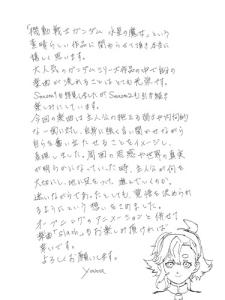 「機動戦士ガンダム 水星の魔女」という
素晴らしい作品に関わらせて頂き本当に
嬉しく思います。
大人気のガンダムシリーズ作品の中で自分の
楽曲が流れることはとても光栄です。
Season1を拝見しましたがSeason2も引き続き
楽しみにしています。
今回の楽曲は主人公の抱える弱さや内向的
な一面に対し、自身に強く言い聞かせながら
自らを奮い立たせることをイメージし、
表現しました。周囲の思惑や世界の真実
が明らかになっていった時、主人公が何を
大切にし、地に足をつけ、進んでいくのか。
迷いながらであったとしても、覚悟を決められ
るようにという想いをこめました。
オープニングのアニメーションと併せて
楽曲「slash」もお楽しみ頂ければ
幸いです。
よろしくお願いします。
yama